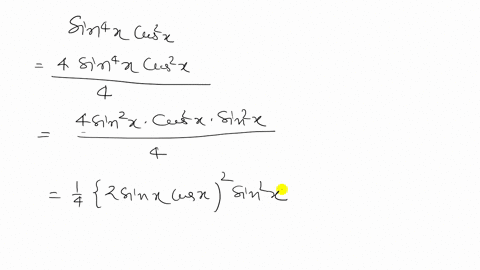 Sin⁴x Cos²x
= 4 Sin⁴x Cos²x / 4
= 4Sin²x · Cos²x · Sin²x / 4
= 1/4 {2Sinx cosx)² Sin²x